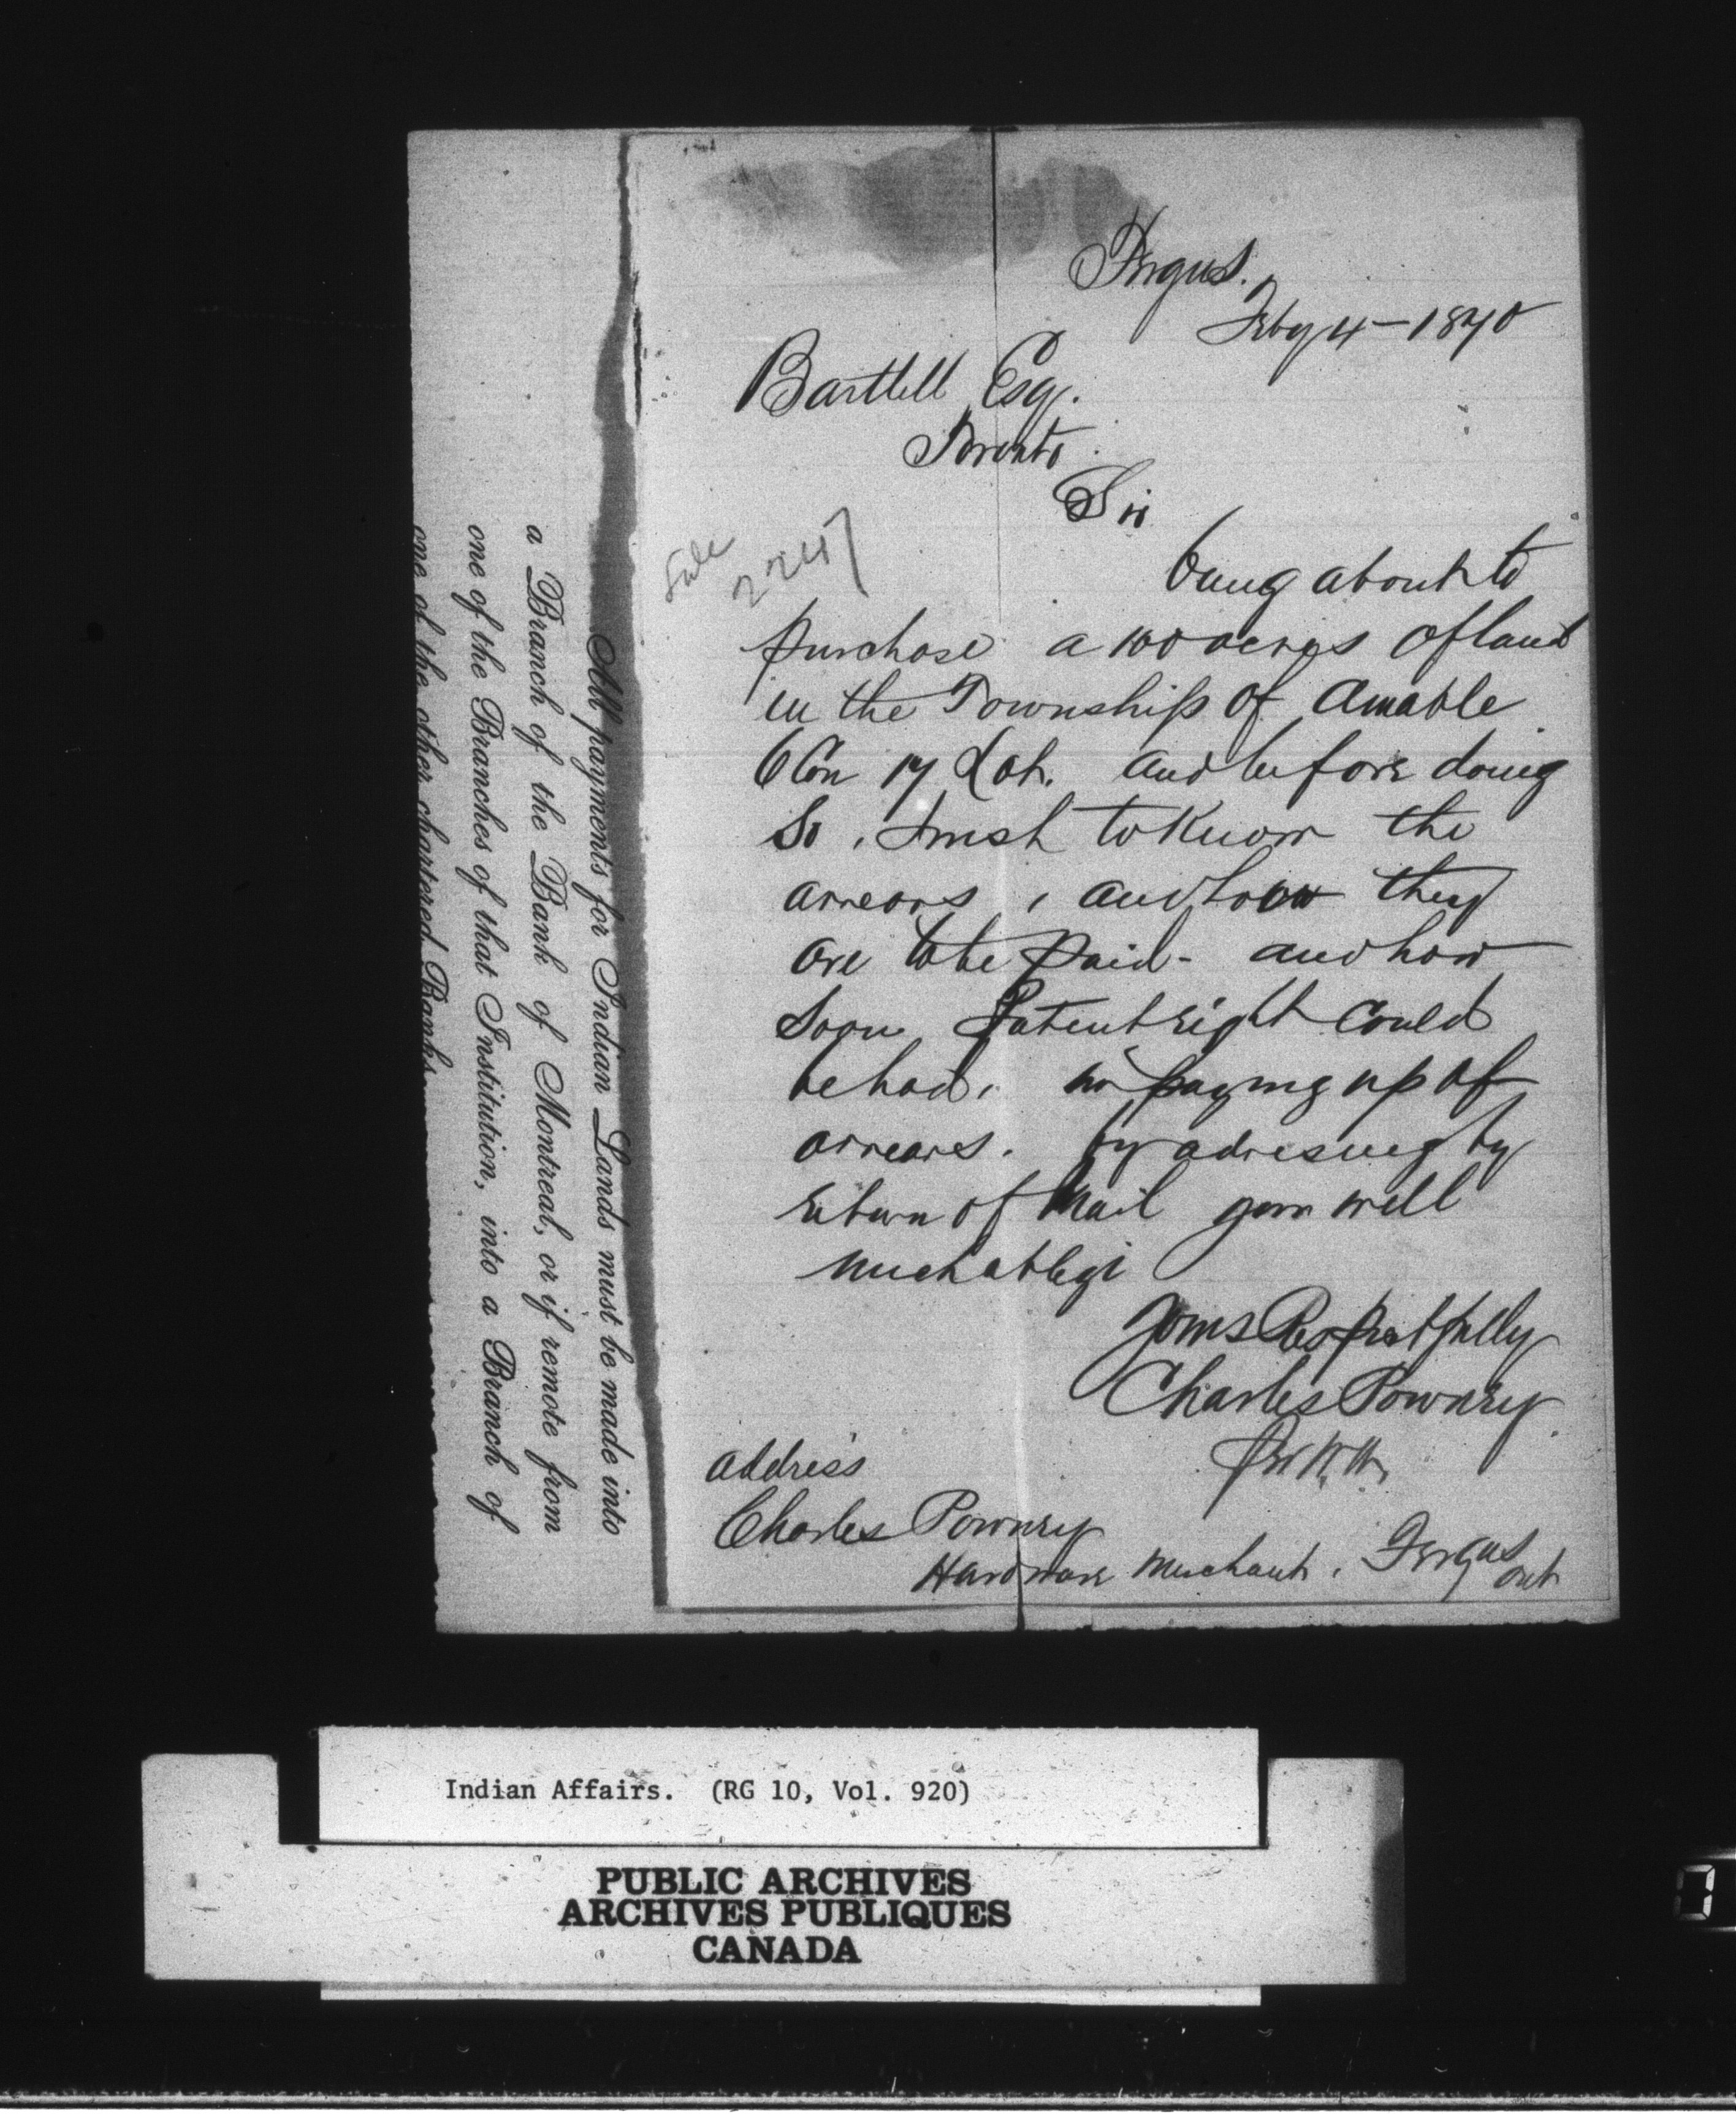 Fergus.
Feby 4 - 1870
Bartlett Esq.
Toronto.
Sir
Sale
2247
being about to
purchase a 100 acres of land
in the Township of Amable
6 Con 17 Lot. and before doing
So, I wish to know the
arrears, and how they
are to be paid - and how
soon Patent right could
be had, on paying up of
arrears. by adresing by
return of Mail you will
much oblige
Yours Respectfully
Charles Powney
Per W.W.
address
Charles Powney
Hardware Merchant. Fergus
Ont
All payments for Indian Lands must be made into
a Branch of the Bank of Montreal, or if remote from
one of the Branches of that Institution, into a Branch of
one of the other chartered Banks.
Indian Affairs. (RG 10, Vol. 920)
PUBLIC ARCHIVES
ARCHIVES PUBLIQUES
CANADA